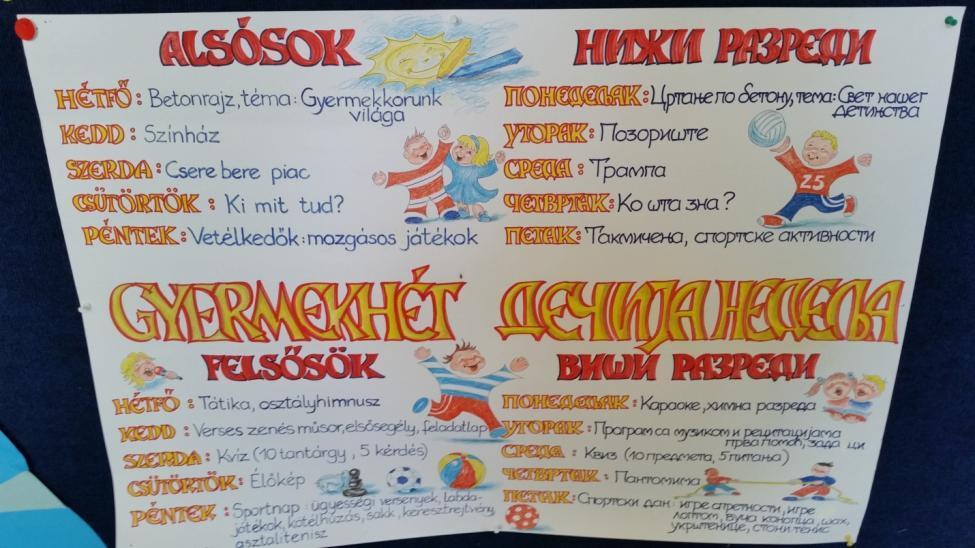 ALSÓSOK
HÉTFŐ: Betonrajz, téma: Gyermekkorunk
világa
KEDD: Színház
SZERDA: Csere bere piac
CSÜTÖRTÖK: Ki mit tud?
PÉNTEK: Vetélkedők: mozgásos játékok
НИЖИ РАЗРЕДИ
ПОНЕДЕЉАК: Цртање по бетону, тема: Свет нашег
детињства
УТОРАК: Позориште
СРЕДА: Трампа
ЧЕТВРТАК: Ко шта зна?
ПЕТАК: Такмичења, спортске активности
25
GYERMEKHÉT
ДЕЧИЈА НЕДЕЉА
FELSŐSÖK
HÉTFŐ: Tátika, osztályhimnusz
KEDD: Verses zenés műsor, elsősegély, feladatlap
SZERDA: Kvíz (10 tantárgy, 5 kérdés)
CSÜTÖRTÖK: Élőkép
PÉNTEK: Sportnap: ügyességi versenyek, labda-
játékok, kötélhúzás, sakk, keresztrejtvény,
asztalitenisz
ВИШИ РАЗРЕДИ
ПОНЕДЕЉАК: Караоке, химна разреда
УТОРАК: Програм са музиком и рецитацијама
прва помоћ, зада ци
СРЕДА: Квиз (10 предмета, 5 питања)
ЧЕТВРТАК: Пантомима
ПЕТАК: Спортски дан: игре спретности, игре
лоптом, вуча конопца, шах,
укрштенице, стони тенис